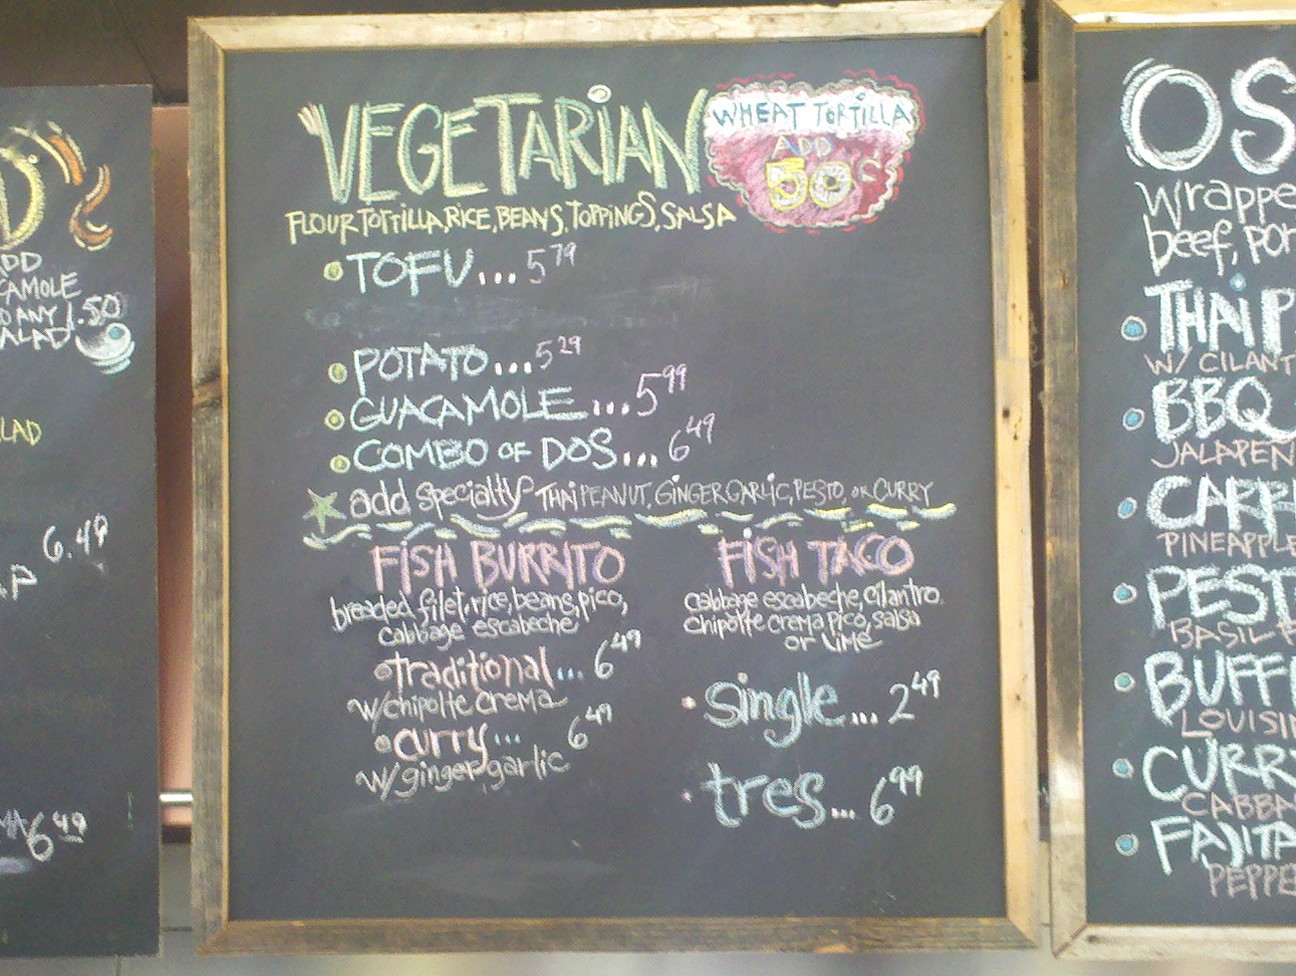 D
ADD
CAMOLE
O ANY 1.50
ALAD!
LAD
6.49
AP
MA 6 49
VEGETARIAN
WHEAT TORTILLA
ADD
50¢
FLOUR TORTILLA, RICE, BEANS, TOPPINGS, SALSA
TOFU... 5 79
POTATO... 5 29
GUACAMOLE... 5 99
COMBO OF DOS... 6 49
add specialty THAI PEANUT, GINGER GARLIC, PESTO, OR CURRY
FISH BURRITO
breaded filet, rice, beans, pico,
cabbage escabeche
traditional... 6 49
w/chipolte crema
curry... 6 49
w/ginger garlic
FISH TACO
cabbage escabeche, cilantro,
chipolte crema pico, salsa
or lime
single... 2 49
tres... 6 99
OS
Wrappe
beef, por
THAI P
W/ CILANT
BBQ
JALAPEN
CARRI
PINEAPPLE
PEST
BASIL
BUFF
LOUISI
CURR
CABBA
FAJITA
PEPPE